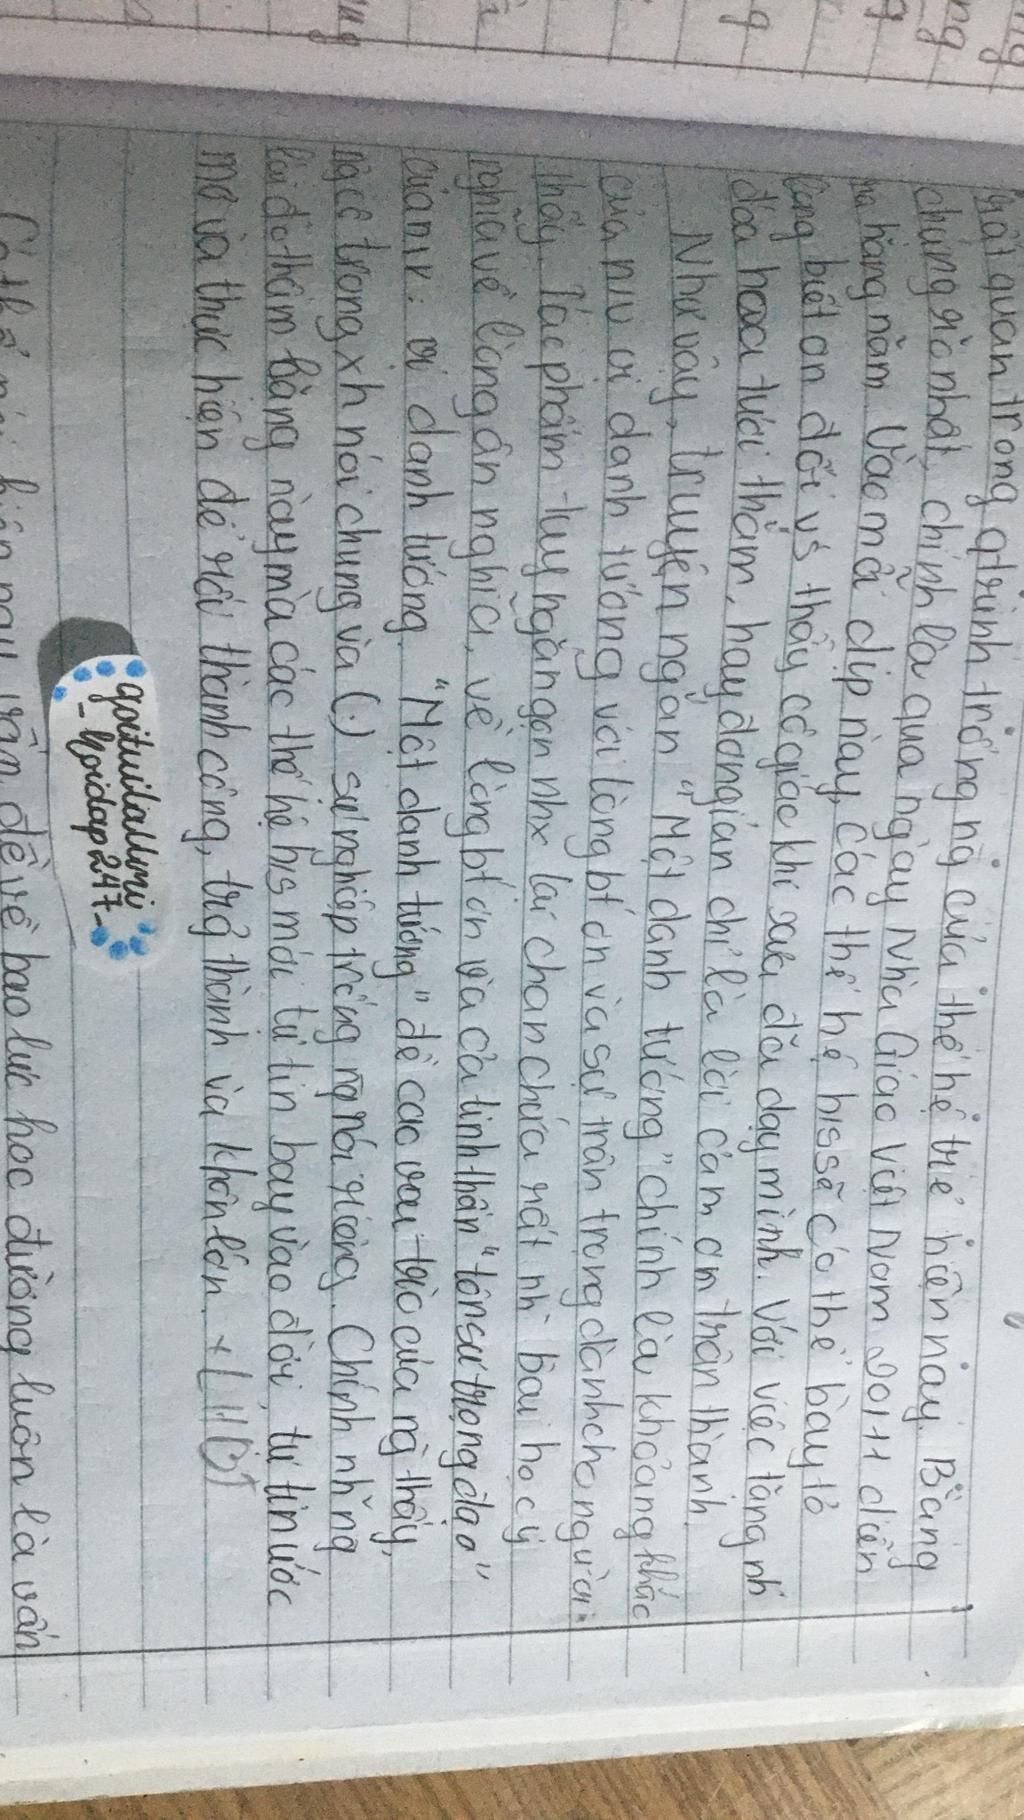 rất quan trọng qtrình trồng ng của thế hệ trẻ hiện nay. Bằng
chứng rõ nhất, chính là qua ngày Nhà Giáo Việt Nam 20/11 diễn
ra hàng năm. Vào mỗi dịp này, các thế hệ hs sẽ có thể bày tỏ
lòng biết ơn đối vs thầy cô giáo khi xưa đã dạy mình. Với việc tặng nh~
đóa hoa tươi thắm, hay đơn giản chỉ là lời cảm ơn trân thành.
Như vậy, truyện ngắn "Một danh tướng" chính là khoảng khắc
của nvv vị danh tướng với lòng bt ơn và sự trân trọng dành cho người
thầy. Tác phẩm tuy ngắn gọn nhx lại chan chứa rất nh` bài học ý
nghĩa về lòng ân nghĩa, về lòng bt ơn và cả tinh thần "tôn sư trọng đạo"
của nv: vị danh tướng. "Một danh tướng" đề cao vai trò của ng thầy,
ng cô trong xh nói chung và (.) sự nghiệp trồng ng nói riêng. Chính những
lời đo thầm lặng này mà các thế hệ hs mới tự tin bay vào đời, tự tin ước
mơ và thực hiện để rồi thành công, trở thành và khôn lớn.
goituilallmi
- hoidap247-
hiện nay vấn đề về bạo lực học đường luôn là vấn